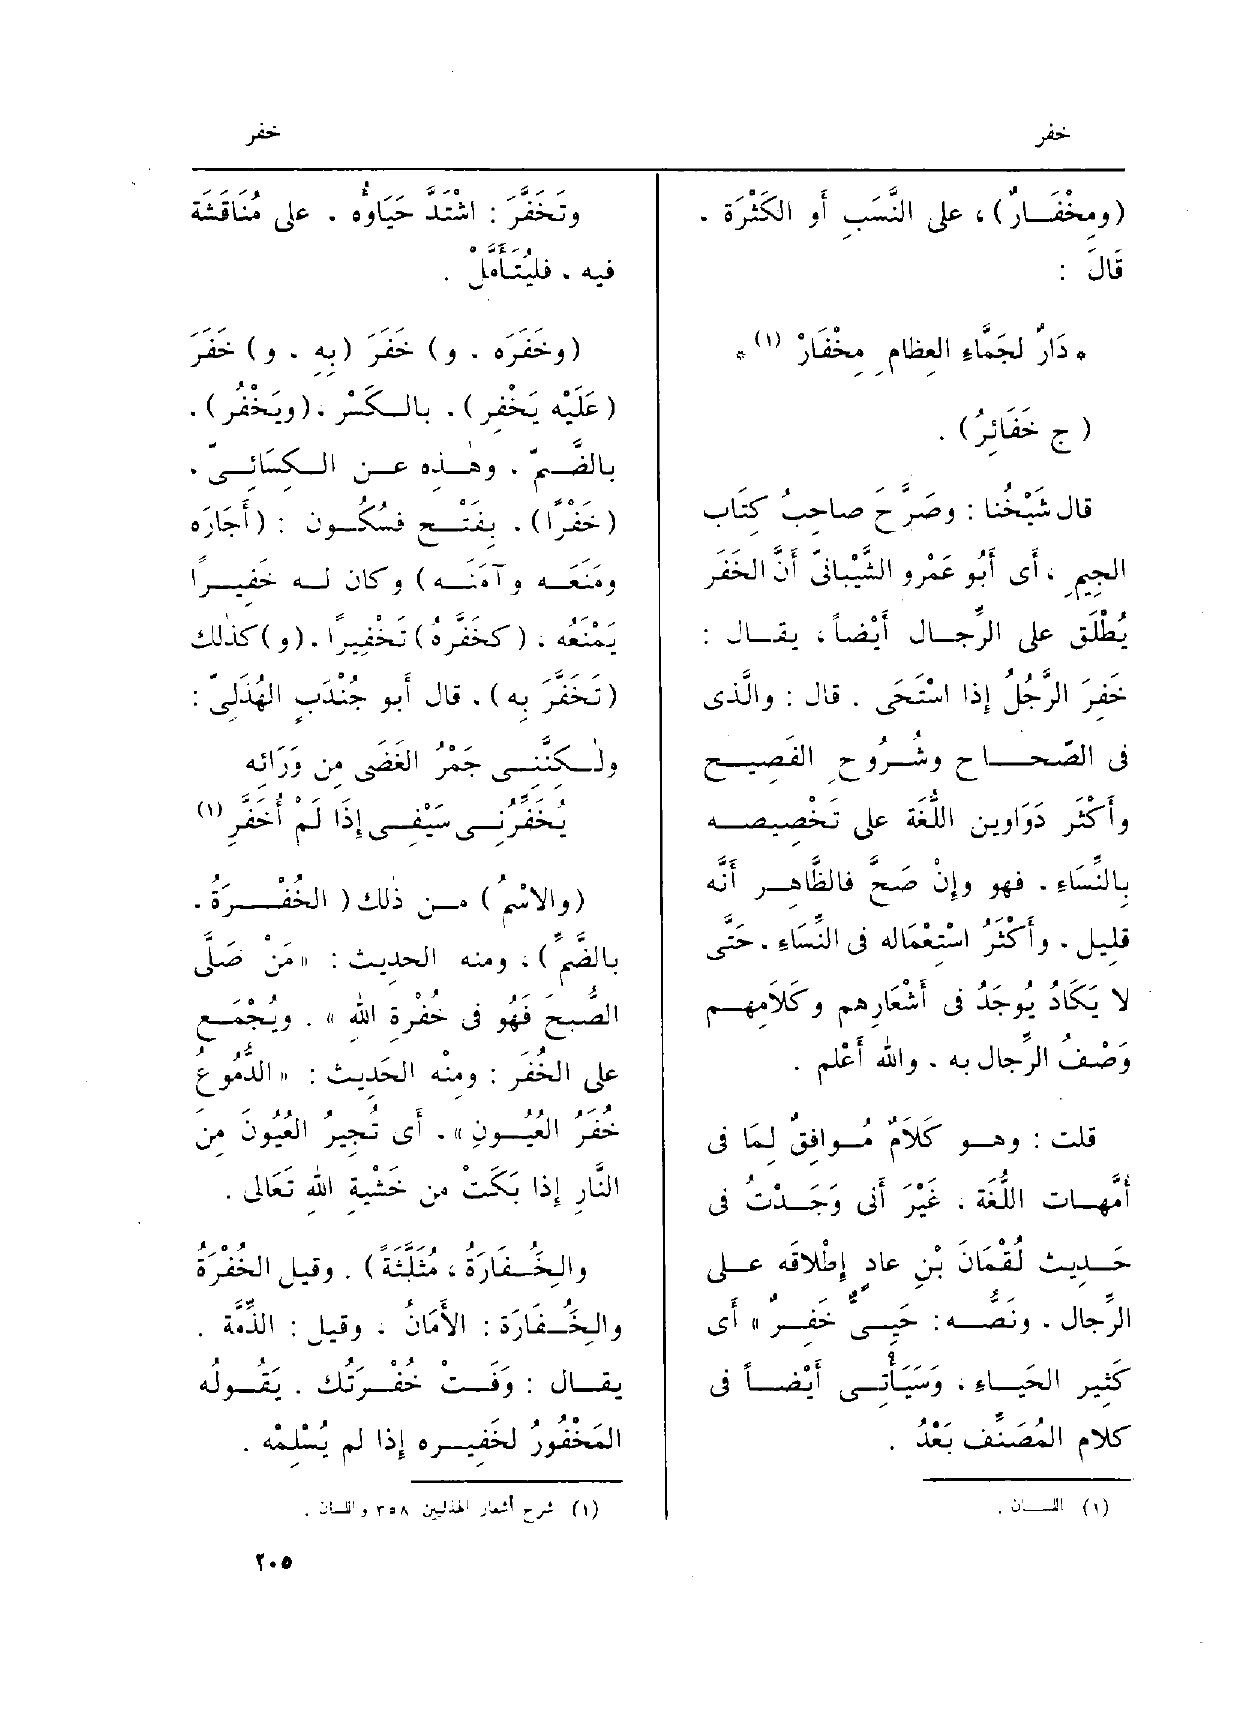 خفر
خفر
(ومِخْفَــارٌ)، على النَّسَبِ أو الكَثْرَة .
قَالَ :
* دَارٌ لجَمَّاءِ العظامِ مِخْفَارْ (١) *
( ج خَفَائِرُ) .
قال شَيْخُنا : وصَرَّحَ صاحِبُ كِتَاب
الجِيمِ ، أى أَبُو عَمْرو الشَّيْبانىّ أَنَّ الخَفَر
يُطْلَق على الرِّجــال أَيْضاً، يقــال :
خَفِرَ الرَّجُلُ إذا اسْتَحَى . قال : والَّذى
فى الصّحـــاح وشُــرُوحِ الفَصِيــح
وأَكْثَر دَوَاوِين اللُّغَة على تَخْصِيصــه
بِالنِّسَاءِ . فهو وإِنْ صَحَّ فالظَّاهِــر أَنَّه
قَلِيل . وأَكْثَرُ اسْتِعْمَاله فى النِّسَاءِ . حَتَّى
لا يَكَادُ يُوجَدُ فى أَشْعَارِهم وكَلَامِهــم
وَصْفُ الرِّجال به . والله أَعْلم .
قلت : وهــو كَلَامٌ مُــوافِقٌ لِمَا فى
أُمَّهــات اللُّغَة . غَيْرَ أَنى وَجَــدْتُ فى
حَــدِيث لُقْمَانَ بْنِ عادٍ إِطْلاقَه عــلى
الرِّجال . ونَصُّــه : حَيِــىٌّ خَفِــرٌ » أَى
كَثِير الحَيَــاءِ . وَسَيَأْتــى أَيْضــاً فى
كلام المُصَنِّف بَعْدُ .
(١) اللــان .
وتَخَفَّرَ : اشْتَدَّ حَيَاؤُه . على مُنَاقَشَة
فيه . فليُتَأَمَّلْ .
(وخَفَرَه . و) خَفَرَ (بِهِ . و) خَفَرَ
(عَلَيْه يَخْفِر) . بالــكَسْر ، (ويَخْفُر) .
بالضَّــمّ . وهــٰذه عــن الــكِسَائِــىّ .
(خَفْرًا) . بفَتْــح فسُكــون : (أَجَارَه
ومَنَعَــه وآمَنَــه) وكان لــه خَفِيــرًا
يَمْنَعُه . (كخَفَّرَهُ) تَخْفِيرًا . (و) كذٰلك
(تَخَفَّرَ به) . قال أَبو جُنْدَبٍ الهُذَلِىّ :
ولٰــكِنَّنِــى جَمْرُ الغَضَى مِن وَرَائه
يُخَفِّرُنِــى سَيْفِــى إِذَا لَمْ أُخَفَّرِ (١)
(والاسْمُ) مــن ذٰلك ( الخُفْــرَةُ .
بالضَّمِّ) . ومنه الحديث : « مَنْ صَلَّى
الصُّبحَ فَهُو فى خُفْرة الله » . ويُجْمَــع
على الخُفَر : ومنْه الحَدِيث : « الدُّمُوعُ
خُفَرُ العُيُــونِ » . أَى تُجِيرُ العُيُونَ مِنَ
النَّارِ إذا بَكَتْ من خَشْيَةِ اللهِ تَعَالى .
والخُِــفَارَةُ ، مُثَلَّثَةً) . وقيل الخُفْرَةُ
والخُــفَارَة : الأَمَانُ ، وقيل : الذِّمَّة .
يقــال : وَفَــت خُفْــرَتُك . يَقُــولُه
المَخْفُورُ لخَفِيــره إذا لم يُسْلِمْه .
(١) شرح أشعار الهذليين ٣٥٨ واللــان .
٢٠٥